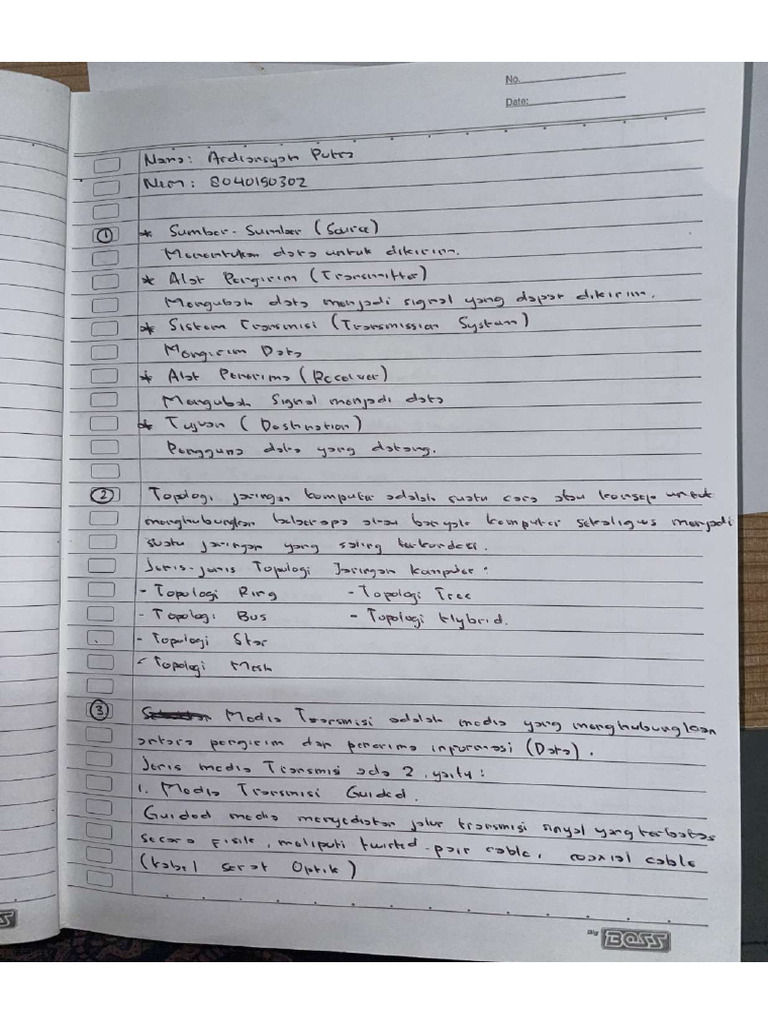 No.
Date:
Nama: Ardiansyah Putra
Nim: 8040190302
① * Sumber-Sumber (Source)
Menentukan data untuk dikirim.
* Alat Pengirim (Transmitter)
Mengubah data menjadi signal yang dapat dikirim.
* Sistem Transmisi (Transmission System)
Mengirim Data
* Alat Penerima (Receiver)
Mengubah Signal menjadi data
* Tujuan (Destination)
Pengguna data yang datang.
② Topologi jaringan komputer adalah suatu cara atau konsep untuk
menghubungkan beberapa atau banyak komputer sekaligus menjadi
suatu jaringan yang saling terkoneksi.
Jenis-jenis Topologi Jaringan Komputer:
- Topologi Ring - Topologi Tree
- Topologi Bus - Topologi Hybrid.
- Topologi Star
- Topologi Mesh
③ Media Transmisi adalah media yang menghubungkan
antara pengirim dan penerima informasi (Data).
Jenis media Transmisi ada 2, yaitu:
1. Media Transmisi Guided.
Guided media menyediakan jalur transmisi sinyal yang terbatas
secara fisik, meliputi twisted-pair cable, coaxial cable
(kabel serat Optik)
Big BOSS